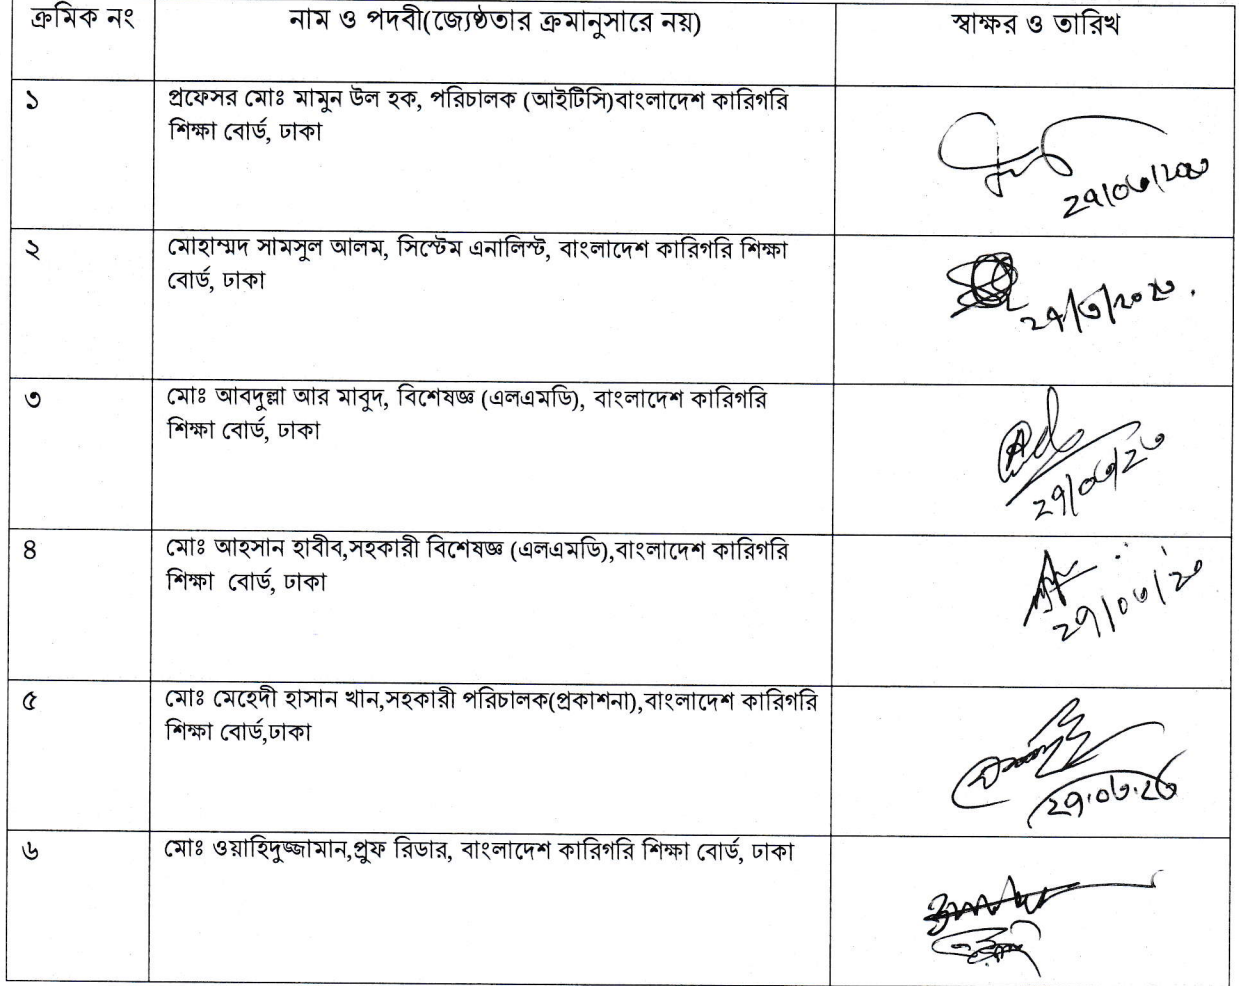 ক্রমিক নং নাম ও পদবী(জ্যেষ্ঠতার ক্রমানুসারে নয়) স্বাক্ষর ও তারিখ
১ প্রফেসর মোঃ মামুন উল হক, পরিচালক (আইটিসি)বাংলাদেশ কারিগরি
শিক্ষা বোর্ড, ঢাকা
২ মোহাম্মদ সামসুল আলম, সিস্টেম এনালিস্ট, বাংলাদেশ কারিগরি শিক্ষা
বোর্ড, ঢাকা
৩ মোঃ আবদুল্লা আর মাবুদ, বিশেষজ্ঞ (এলএমডি), বাংলাদেশ কারিগরি
শিক্ষা বোর্ড, ঢাকা
৪ মোঃ আহসান হাবীব,সহকারী বিশেষজ্ঞ (এলএমডি),বাংলাদেশ কারিগরি
শিক্ষা বোর্ড, ঢাকা
৫ মোঃ মেহেদী হাসান খান,সহকারী পরিচালক(প্রকাশনা),বাংলাদেশ কারিগরি
শিক্ষা বোর্ড,ঢাকা
২৭.০৬.২৩
৬ মোঃ ওয়াহিদুজ্জামান,প্রুফ রিডার, বাংলাদেশ কারিগরি শিক্ষা বোর্ড, ঢাকা